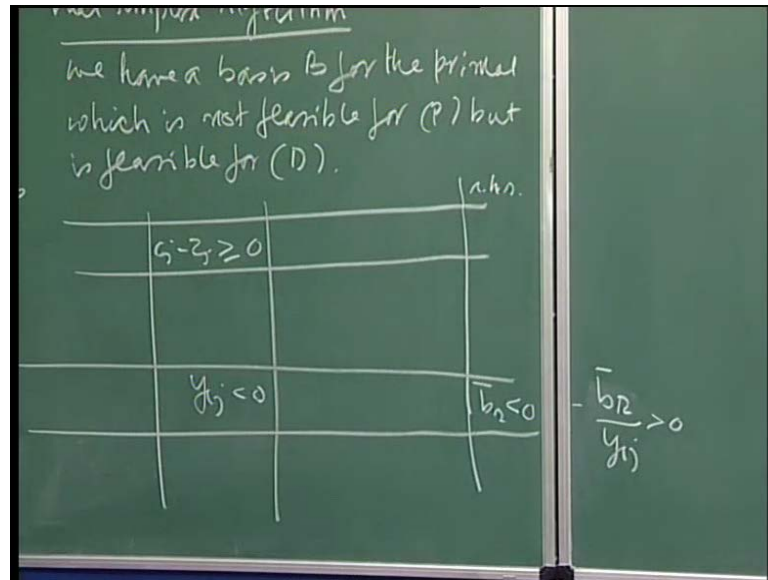 simplex Algorithm
we have a basis B for the primal
which is not feasible for (P) but
is feasible for (D).
r.h.s.
cj-zj ≥ 0
yrj < 0
b̄r < 0
- b̄r / yrj > 0